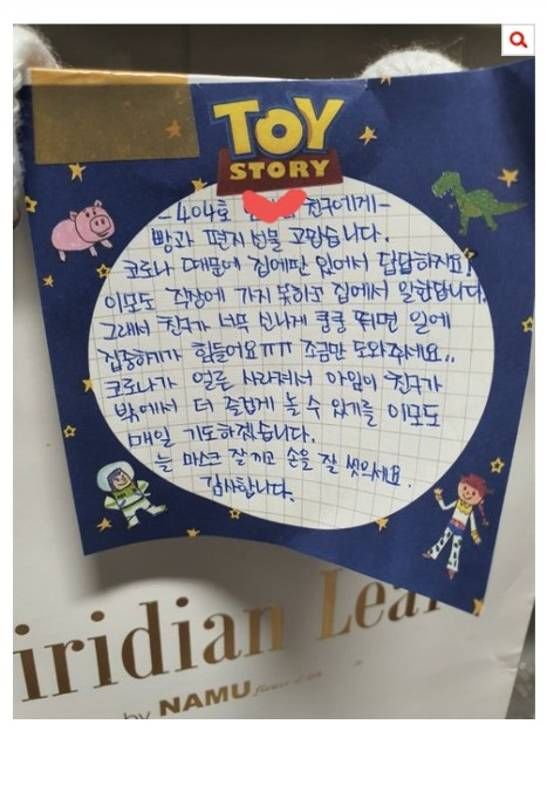 TOY
STORY
-404호 친구에게-
빵과 편지 선물 고맙습니다.
코로나 때문에 집에만 있어서 답답하지요?
이모도 직장에 가지 못하고 집에서 일한답니다.
그래서 친구가 너무 신나게 쿵쿵 뛰면 일에
집중하기가 힘들어요ㅠㅠ 조금만 도와주세요..
코로나가 얼른 사라져서 아랫집 친구가
밖에서 더 즐겁게 놀 수 있기를 이모도
매일 기도하겠습니다.
늘 마스크 잘끼고 손을 잘 씻으세요.
감사합니다.
iridian Lea
by NAMU